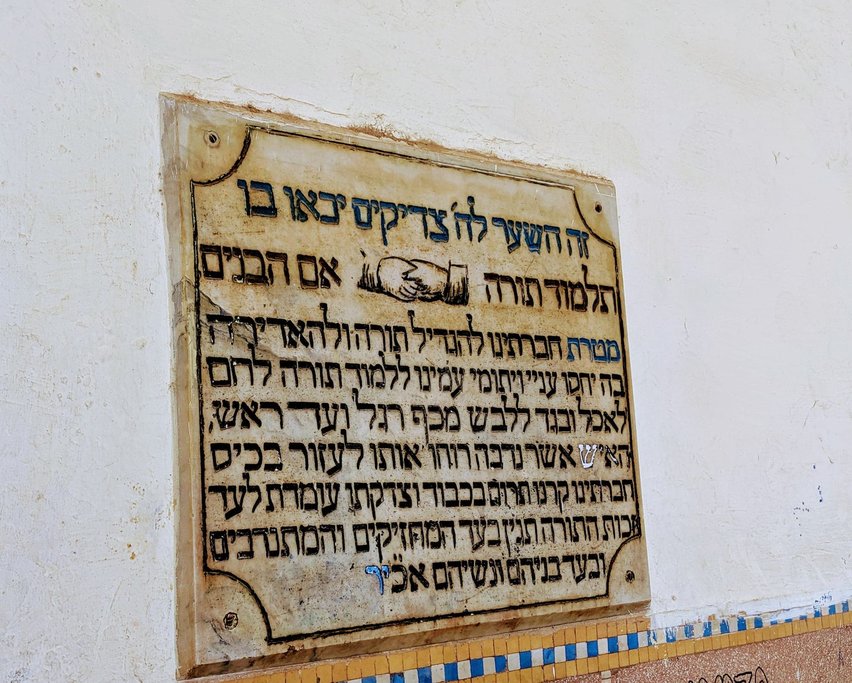 זה השער לה׳ צדיקים יבאו בו
תלמוד תורה אם הבנים
מטרת חברתינו להגדיל תורה ולהאדירה
בה יחסו עניי ויתומי עמינו ללמוד תורה לחם
לאכל ובגד ללבש מכף רגל ועד ראש,
האיש אשר נדבה רוחו אותו לעזור בכיס
חברתינו קרנו תרום בכבוד וצדקתו עומדת לעד
זכות התורה תגין בעד המחזיקים והמתנדבים
ובעד בניהם ונשיהם אכי״ר